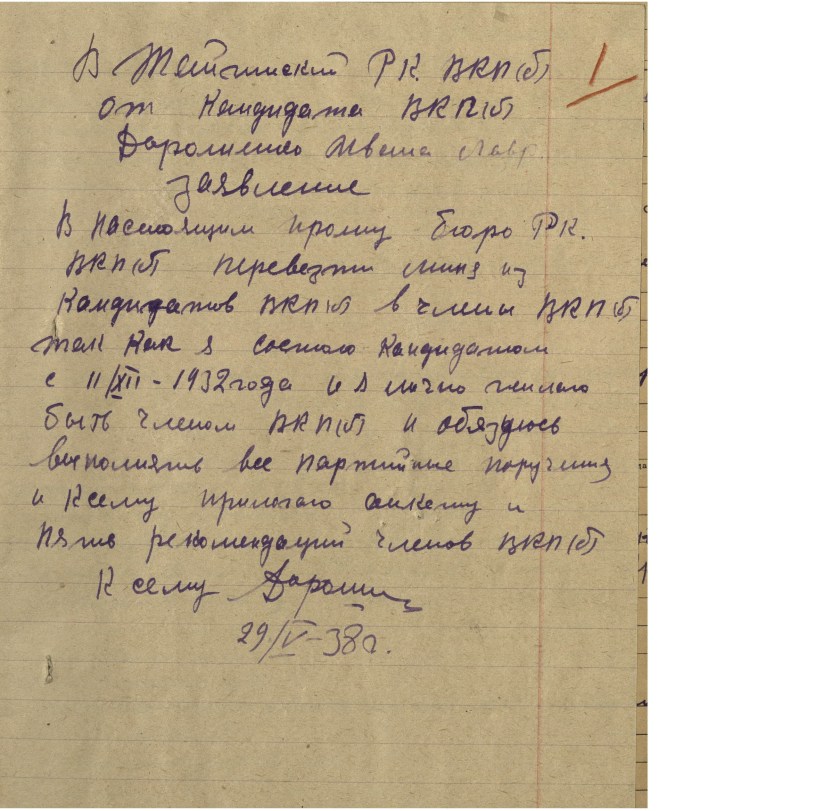 В Тейгинский РК. ВКП(б) 1
от Кандидата ВКП(б)
Дорошенко Ивана Лавр.
заявление
В настоящим прошу бюро РК.
ВКП(б) перевезти миня из
Кандидатов ВКП(б) в члены ВКП(б)
так как я состою Кандидатом
с 11/XII - 1932 года и я лично желаю
быть членом ВКП(б) и обязуюсь
выполнять все партийные поручения
и Ксему прилогаю анкету и
пять рекомендаций членов ВКП(б)
К сему
29/IV-38г.